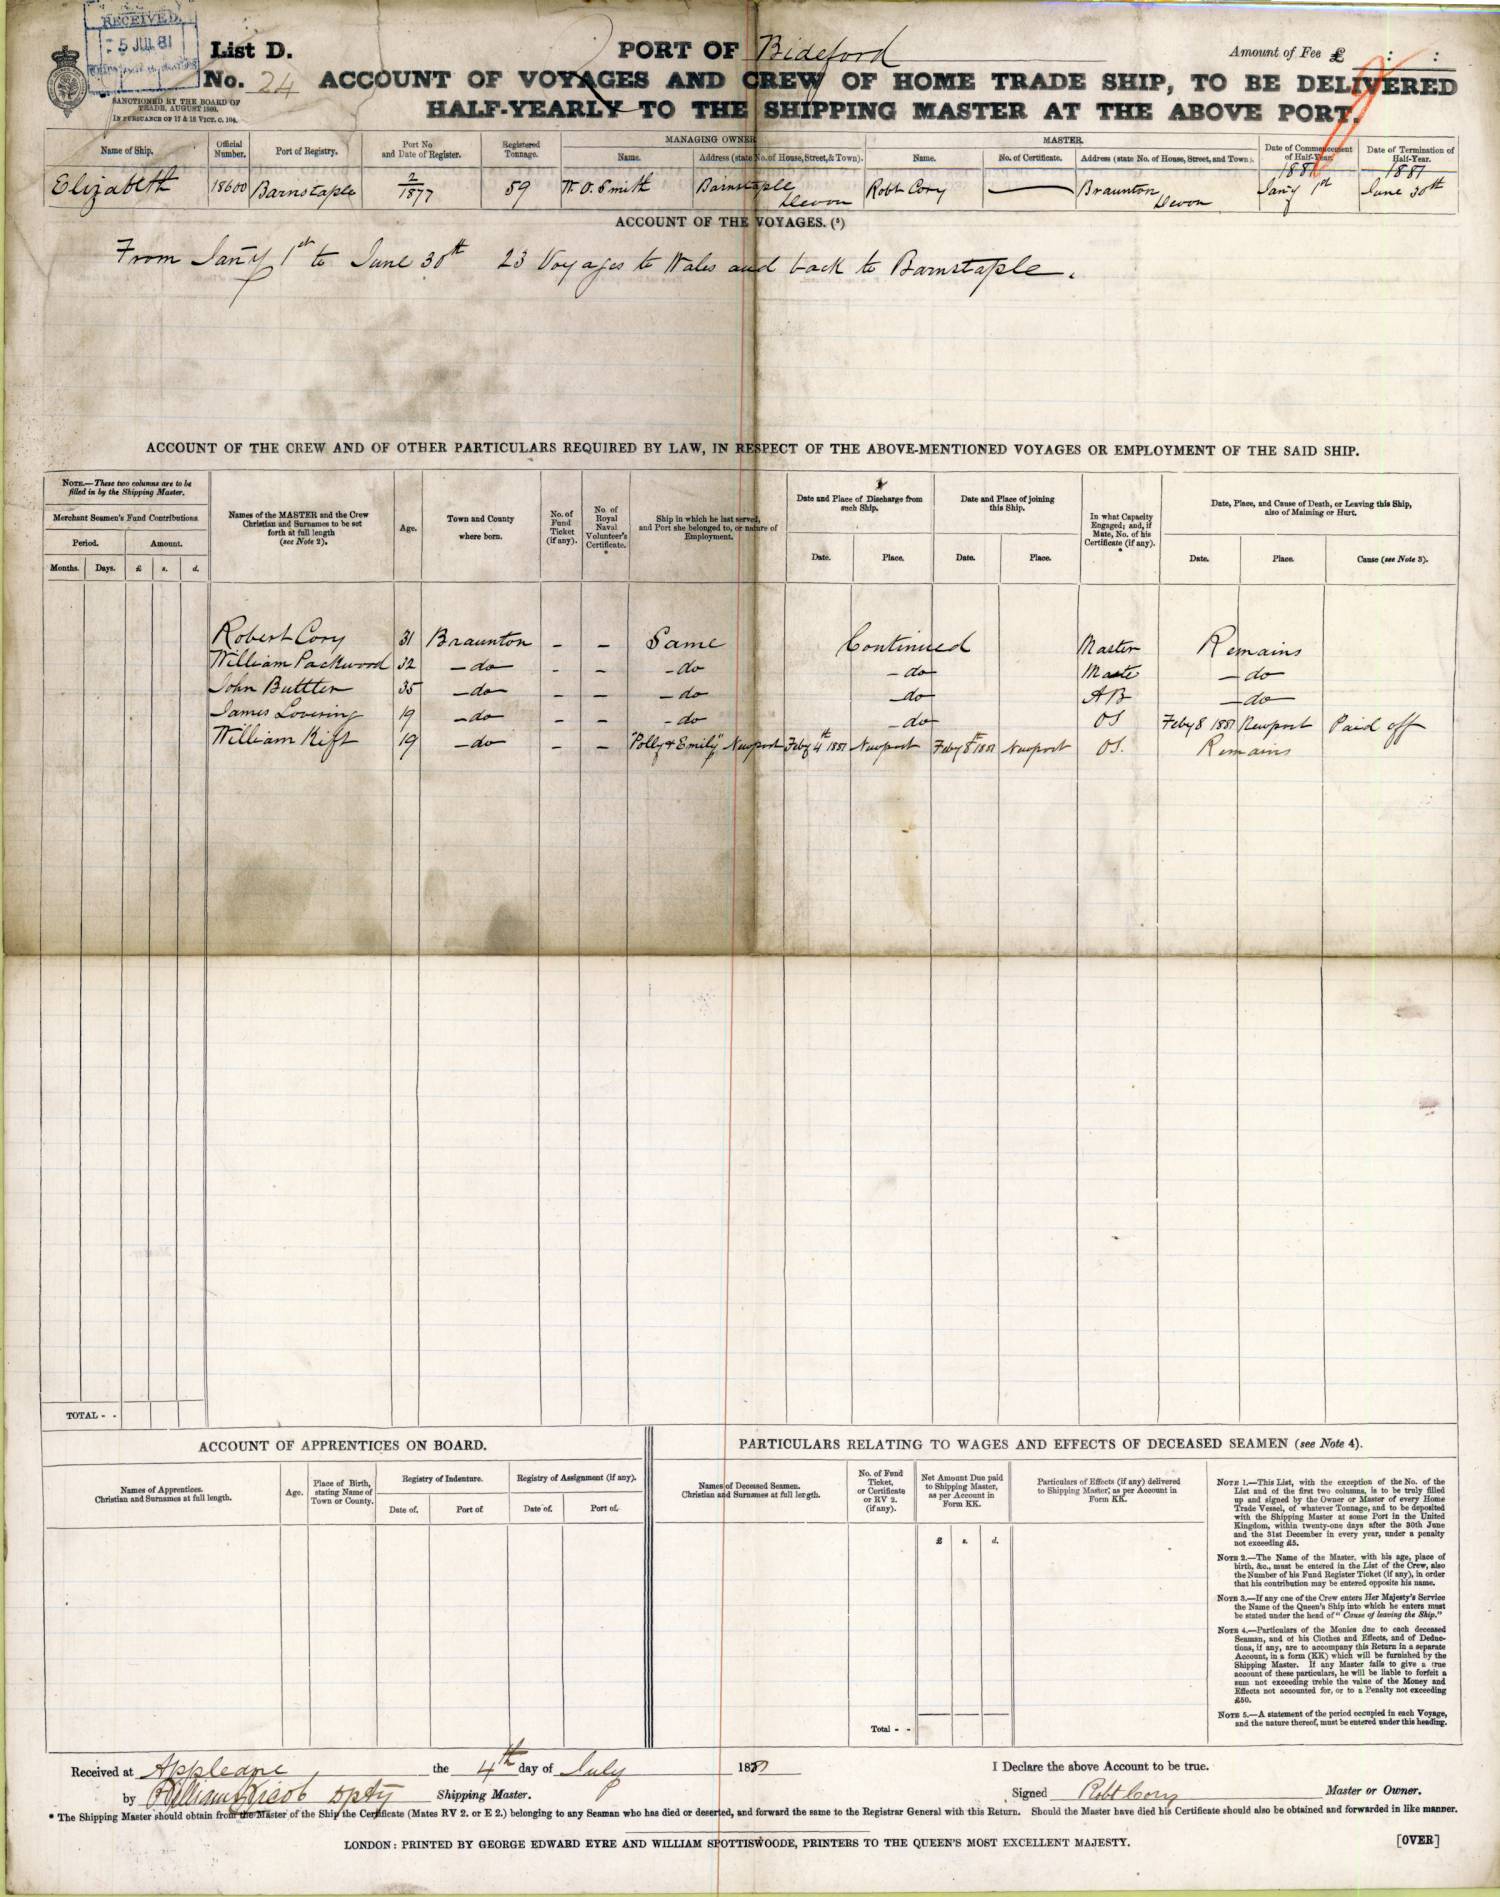 RECEIVED
5 JUL 81
List D.
PORT OF Bideford
Amount of Fee £ : :
No. 24 ACCOUNT OF VOYAGES AND CREW OF HOME TRADE SHIP, TO BE DELIVERED
SANCTIONED BY THE BOARD OF
TRADE, AUGUST 1860.
IN PURSUANCE OF 17 & 18 VICT. C. 104.
HALF-YEARLY TO THE SHIPPING MASTER AT THE ABOVE PORT.
Name of Ship.
Official Number.
Port of Registry.
Port No and Date of Register.
Registered Tonnage.
MANAGING OWNER
Name.
Address (state No. of House, Street, & Town).
MASTER.
Name.
No. of Certificate.
Address (state No. of House, Street, and Town).
Date of Commencement of Half-Year.
Date of Termination of Half-Year.
1881 1881
Elizabeth 18600 Barnstaple 2/1877 59 W O. Smith Barnstaple Devon Robt Cory — Braunton Devon Jany 1st June 30th
ACCOUNT OF THE VOYAGES. (5)
From Jany 1st to June 30th 23 Voyages to Wales and back to Barnstaple.
ACCOUNT OF THE CREW AND OF OTHER PARTICULARS REQUIRED BY LAW, IN RESPECT OF THE ABOVE-MENTIONED VOYAGES OR EMPLOYMENT OF THE SAID SHIP.
NOTE.—These two columns are to be
filled in by the Shipping Master.
Merchant Seamen's Fund Contributions
Period.
Amount.
Months. Days. £ s. d.
Names of the MASTER and the Crew
Christian and Surnames to be set
forth at full length
(see Note 2).
Age.
Town and County
where born.
No. of
Fund
Ticket
(if any).
No. of
Royal
Naval
Volunteer's
Certificate.
*
Ship in which he last served,
and Port she belonged to, or nature of
Employment.
Date and Place of Discharge from
such Ship.
Date. Place.
Date and Place of joining
this Ship.
Date. Place.
In what Capacity
Engaged; and, if
Mate, No. of his
Certificate (if any).
*
Date, Place, and Cause of Death, or Leaving this Ship,
also of Maiming or Hurt.
Date. Place. Cause (see Note 3).
Robert Cory 31 Braunton - - Same Continued Master Remains
William Packwood 32 - do - - - do - do Mate - do
John Buttler 35 - do - - - do - do A B - do
James Lovering 19 - do - - - do - do OS Feby 8 1881 Newport Paid off
William Kift 19 - do - - "Polly & Emily" Newport Feby 4th 1881 Newport Feby 8th 1881 Newport OS. Remains
TOTAL - -
ACCOUNT OF APPRENTICES ON BOARD.
Names of Apprentices.
Christian and Surnames at full length.
Age.
Place of Birth,
stating Name of
Town or County.
Registry of Indenture.
Date of. Port of.
Registry of Assignment (if any).
Date of. Port of.
PARTICULARS RELATING TO WAGES AND EFFECTS OF DECEASED SEAMEN (see Note 4).
Names of Deceased Seamen.
Christian and Surnames at full length.
No. of Fund
Ticket,
or Certificate
or RV 2.
(if any).
Net Amount Due paid
to Shipping Master,
as per Account in
Form KK.
£ s. d.
Particulars of Effects (if any) delivered
to Shipping Master, as per Account in
Form KK.
Total - -
NOTE 1.—This List, with the exception of the No. of the
List and of the first two columns, is to be truly filled
up and signed by the Owner or Master of every Home
Trade Vessel, of whatever Tonnage, and to be deposited
with the Shipping Master at some Port in the United
Kingdom, within twenty-one days after the 30th June
and the 31st December in every year, under a penalty
not exceeding £5.
NOTE 2.—The Name of the Master, with his age, place of
birth, &c., must be entered in the List of the Crew, also
the Number of his Fund Register Ticket (if any), in order
that his contribution may be entered opposite his name.
NOTE 3.—If any one of the Crew enters Her Majesty's Service
the Name of the Queen's Ship into which he enters must
be stated under the head of "Cause of leaving the Ship."
NOTE 4.—Particulars of the Monies due to each deceased
Seaman, and of his Clothes and Effects, and of Deduc-
tions, if any, are to accompany this Return in a separate
Account, in a form (KK) which will be furnished by the
Shipping Master. If any Master fails to give a true
account of these particulars, he will be liable to forfeit a
sum not exceeding treble the value of the Money and
Effects not accounted for, or to a Penalty not exceeding
£50.
NOTE 5.—A statement of the period occupied in each Voyage,
and the nature thereof, must be entered under this heading.
Received at Appledore the 4th day of July 1881
I Declare the above Account to be true.
by William Jacob Dpty Shipping Master.
Signed Robt Cory Master or Owner.
* The Shipping Master should obtain from the Master of the Ship the Certificate (Mates RV 2. or E 2.) belonging to any Seaman who has died or deserted, and forward the same to the Registrar General with this Return. Should the Master have died his Certificate should also be obtained and forwarded in like manner.
LONDON: PRINTED BY GEORGE EDWARD EYRE AND WILLIAM SPOTTISWOODE, PRINTERS TO THE QUEEN'S MOST EXCELLENT MAJESTY.
[OVER]